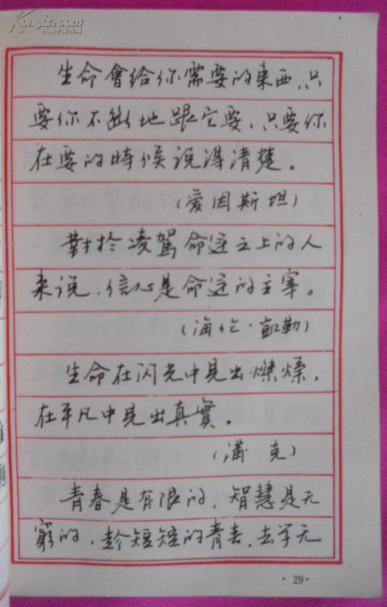 生命會给你需要的東西，只
要你不断地跟它要，只要你
在要的時候说得清楚。
（爱因斯坦）
對於凌駕命运之上的人
来说，信心是命运的主宰。
（海伦·凱勒）
生命在闪光中見出燦爛，
在平凡中見出真實。
（满克）
青春是有限的，智慧是无
窮的，趁短短的青春，去学无
·29·